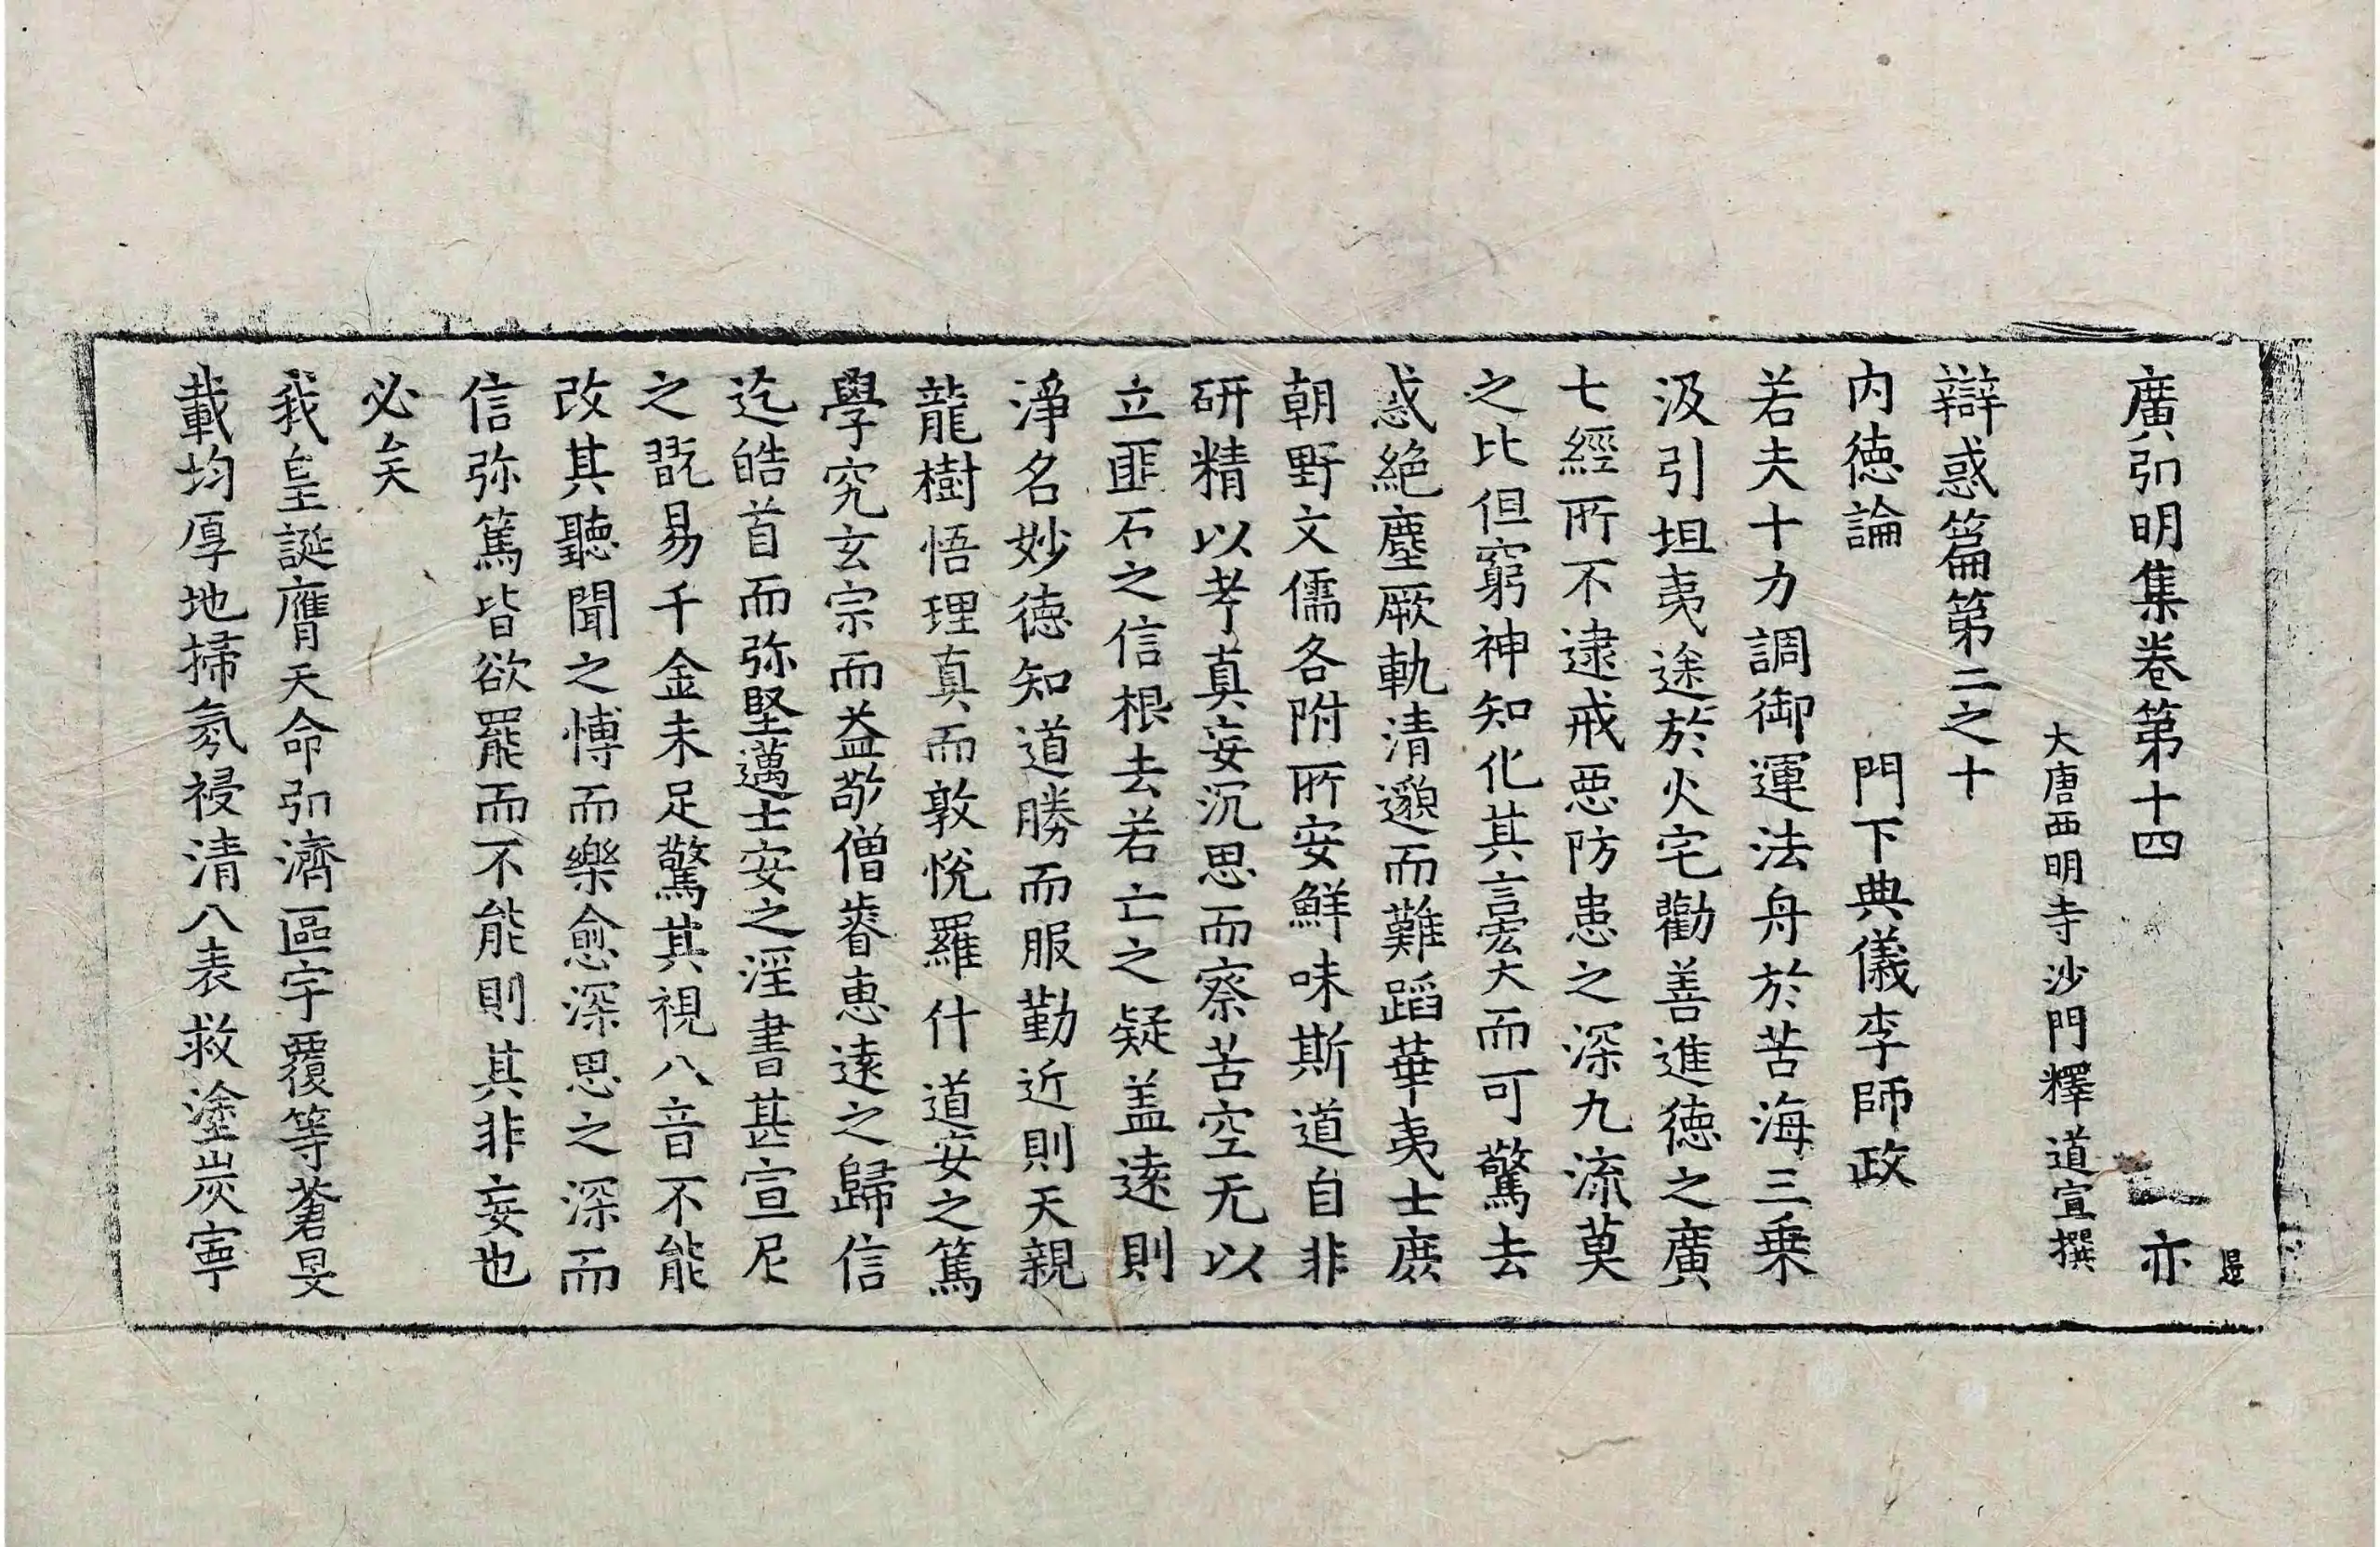 廣弘明集卷第十四 亦
大唐西明寺沙門釋道宣撰
辯惑篇第二之十
內德論 門下典儀李師政
若夫十力調御運法舟於苦海三乗
汲引坦夷途於火宅勸善進德之廣
七經所不逮戒惡防患之深九流莫
之比但窮神知化其言宏大而可驚去
惑絕塵厥軌清邈而難蹈華夷士庶
朝野文儒各附所安鮮味斯道自非
研精以考真妄沉思而察苦空无以
立匪石之信根去若亡之疑盖遠則
淨名妙德知道勝而服勤近則天親
龍樹悟理真而敦悅羅什道安之篤
學究玄宗而益敬僧睿恵遠之歸信
迄皓首而弥堅邁士安之淫書甚宣尼
之翫易千金未足驚其視八音不能
改其聽聞之博而樂愈深思之深而
信弥篤皆欲罷而不能則其非妄也
必矣
我皇誕膺天命弘濟區宇覆等蒼旻
載均厚地掃氛祲清八表救塗炭寧